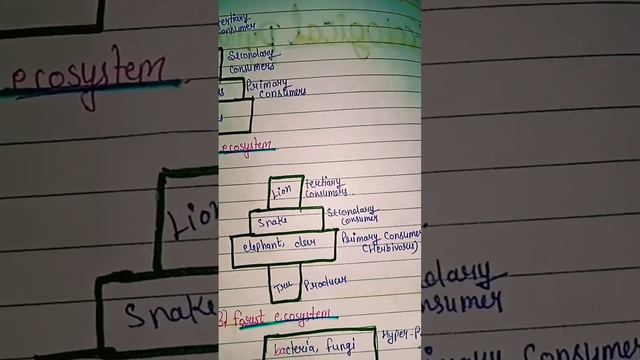 tertiary
consumer
Secondary
consumers
Primary
consumers
ecosystem
Lion
tertiary
consumers
Snake
Secondary
consumer
elephant, deer
Primary Consumer
(Herbivorus)
Tree
Producer
3) forest ecosystem
Hyper-P
bacteria, fungi
ecosystem
Lion
Snake
dary
nsumer